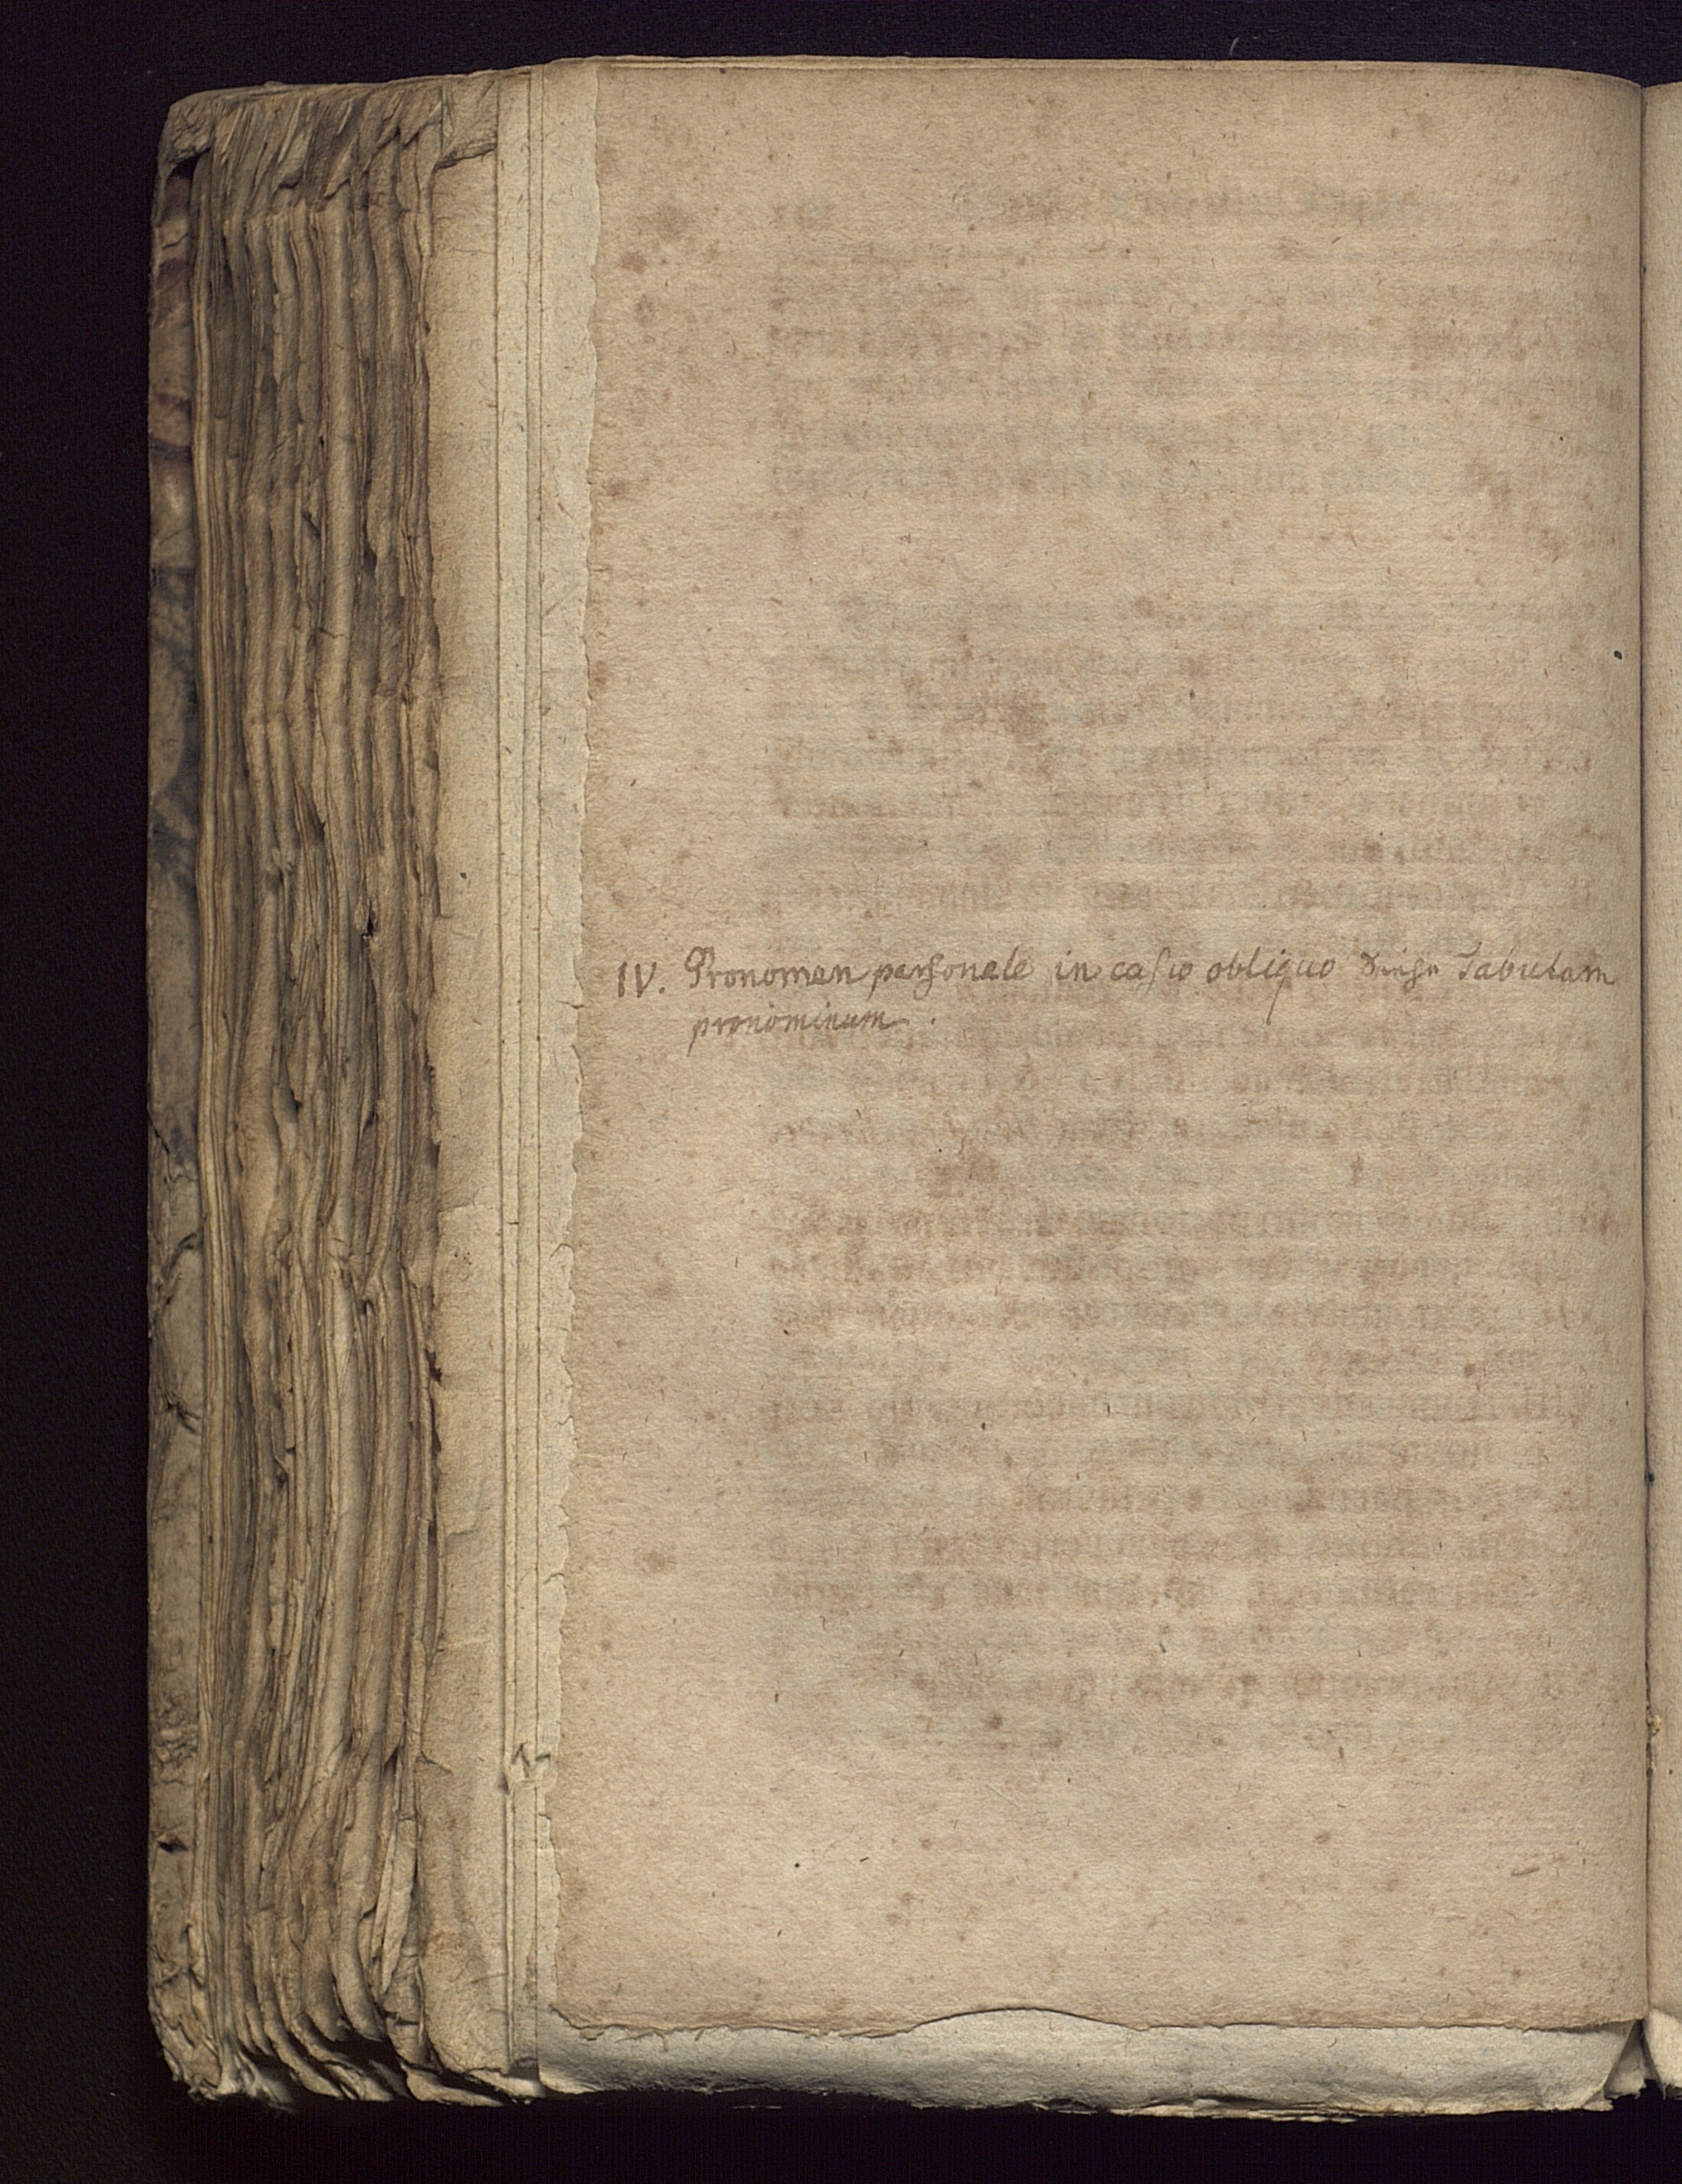 IV. Pronomen personale in casu obliquo Tabulam
pronominum.